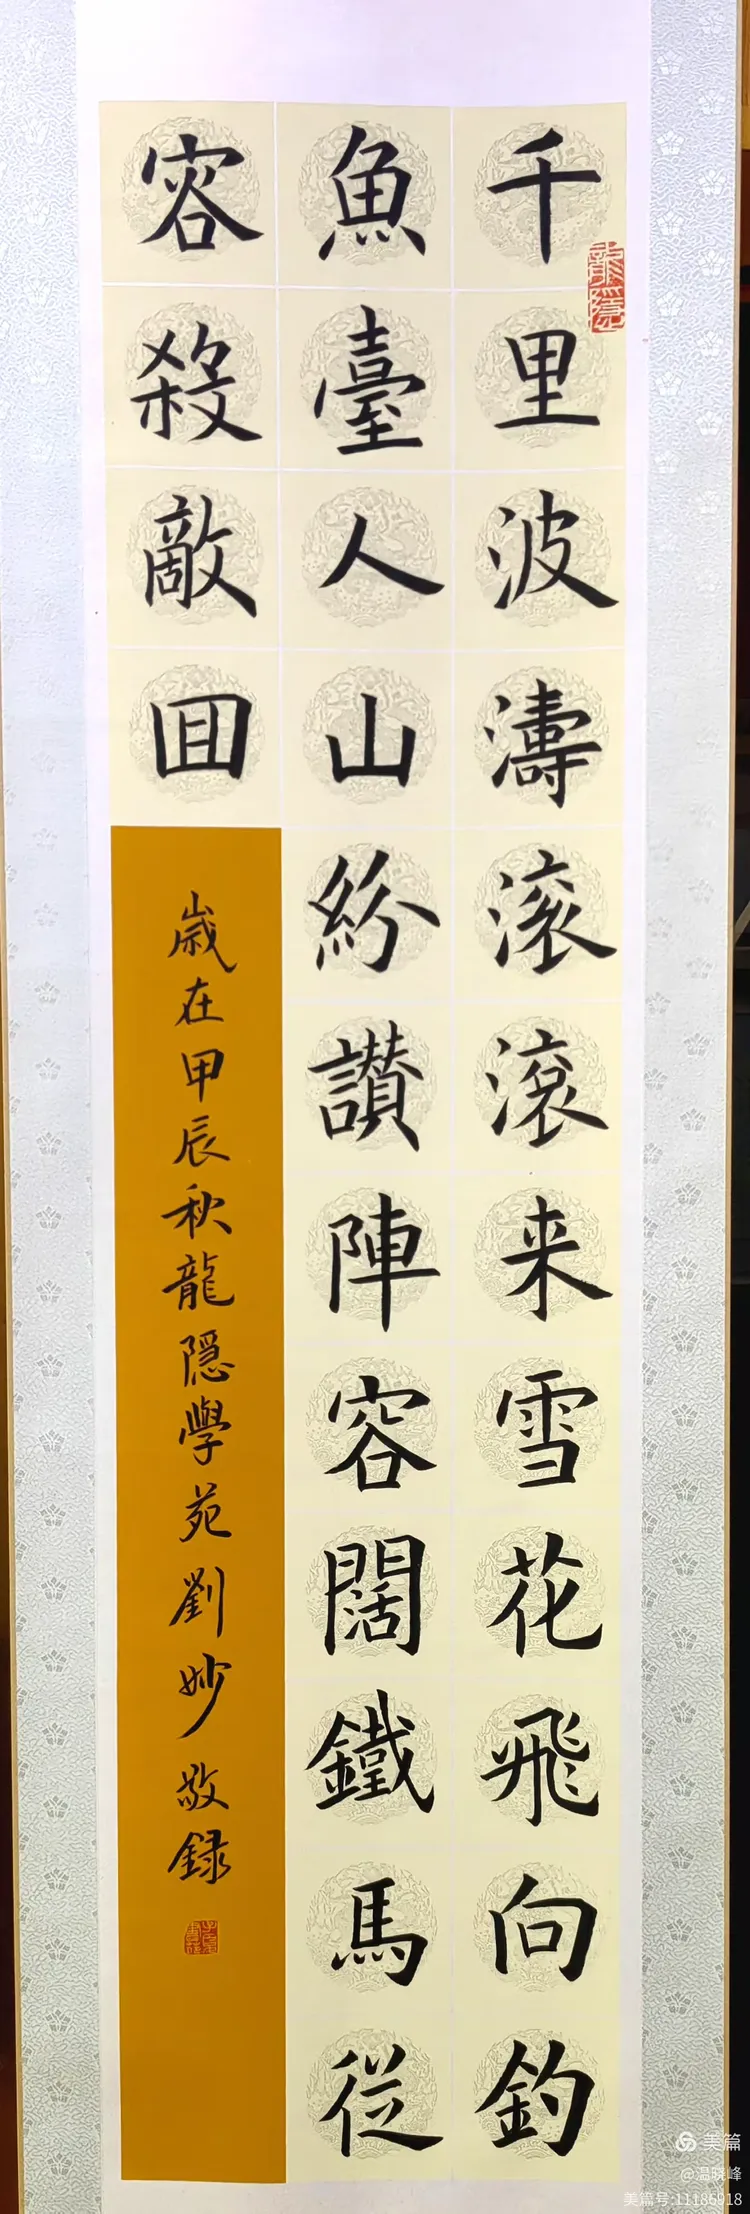 千里波濤滚滚来雪花飛向釣
魚臺人山紛讃陣容闊鐵馬従
容殺敵回
歳在甲辰秋龍隱學苑劉妙敬録
龍隱
美篇
@温晓峰
美篇号:11186918